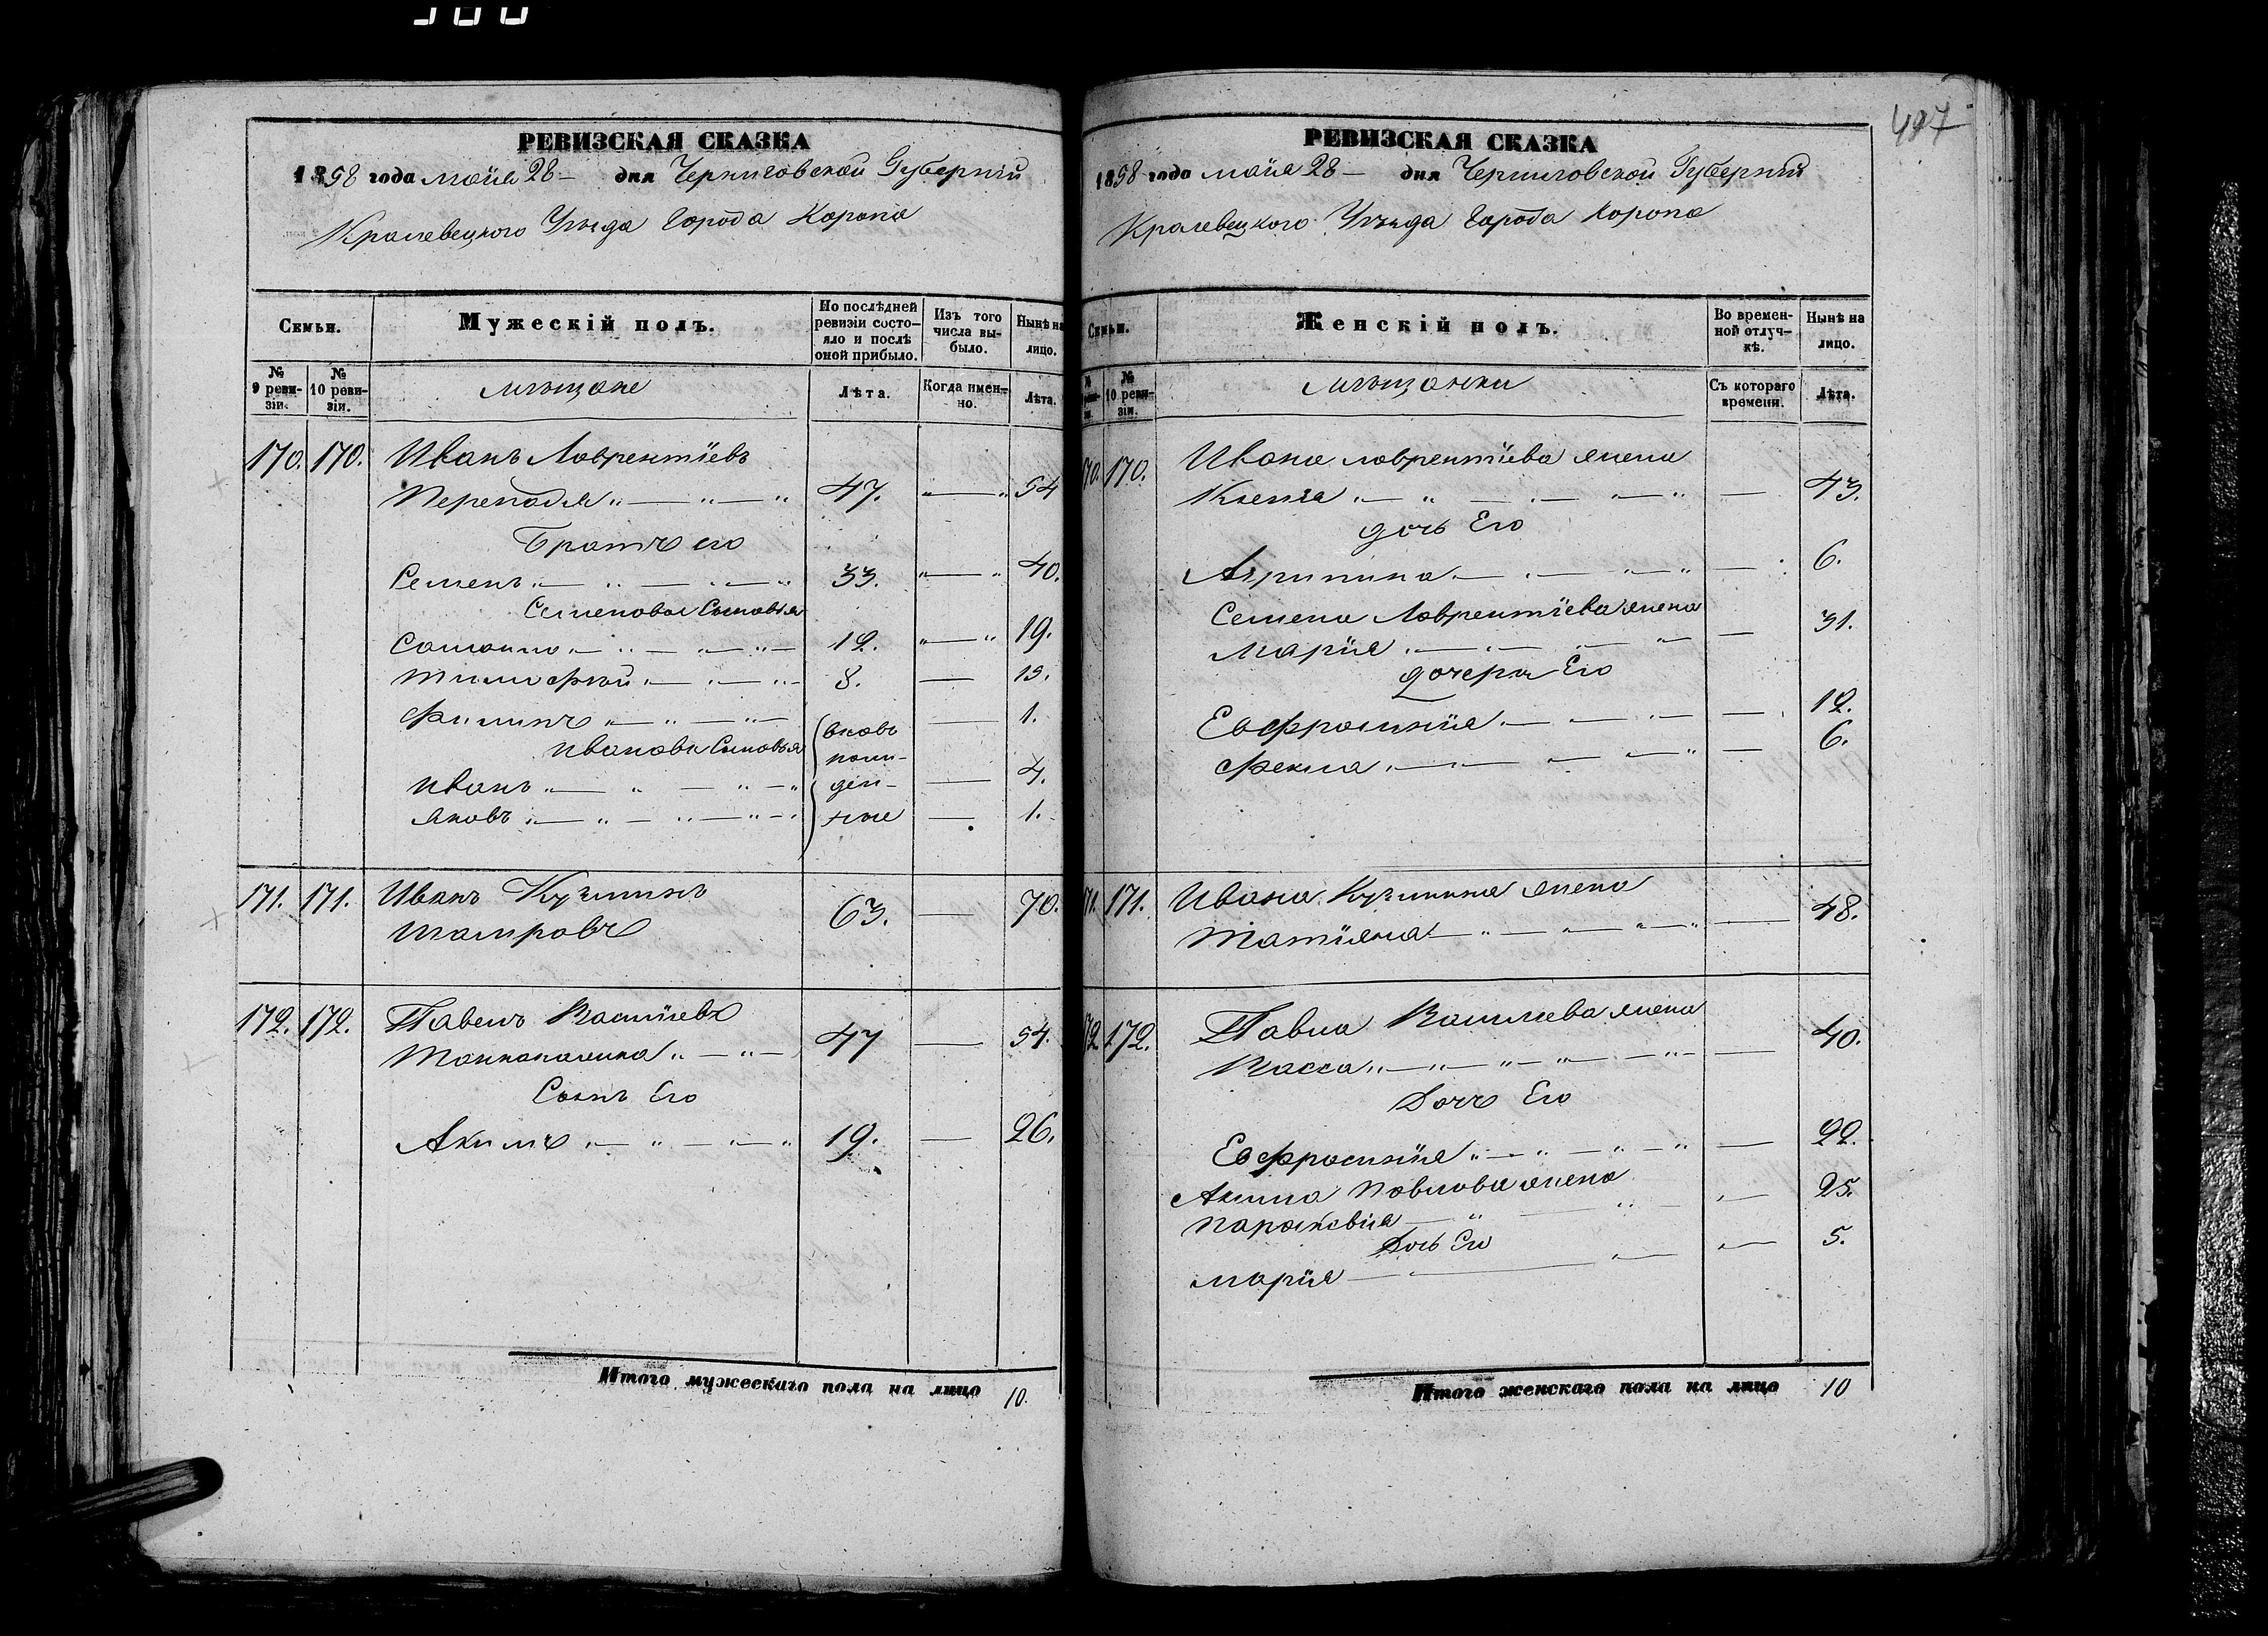 497
РЕВИЗСКАЯ СКАЗКА
1858 года маія 28 — дня Черниговской Губерніи
Кролевецкого Уезда Города Коропа
Семьи.
Мужескій полъ.
По послѣдней ревизіи состо-яло и послѣ оной прибыло.
Изъ того числа вы-было.
Нынѣ на лицо.
№ 9 реви-зіи.
№ 10 реви-зіи.
мѣщане
Лѣта.
Когда имен-но.
Лѣта.
170. 170. Иванъ Лаврентіевъ
47. 54
Братъ его
Семенъ 33. 40.
Семеновы Сыновья
12. 19.
Тимофей 8. 15.
Филипъ 1.
Ивановы Сыновья
вновь
Иванъ 4.
Яковъ 1.
171. 171. Иванъ Кузминъ
63. 70.
172. 172. Павелъ Василіевъ
47 54.
Сынъ Его
Акимъ 19. 26.
Итого мужескаго пола на лицо 10.
РЕВИЗСКАЯ СКАЗКА
1858 года маія 28 — дня Черниговской Губерніи
Кролевецкого Уезда Города Коропа
Семьи.
Женскій полъ.
Во времен-ной отлуч-кѣ.
Нынѣ на лицо.
№ 10 реви-зіи.
мѣщанки
Съ котораго времени.
Лѣта.
170. 170. Ивана Лаврентіева жена
Ксенія 43.
дочь Его
Агрипина 6.
Семена Лаврентіева жена
Марія 31.
дочери Его
Евфросинія 12.
Фекла 6.
171. 171. Ивана Кузмина жена
Татіяна 48.
172 172. Павла Василева жена
Васса 40.
Дочь Его
Евфросинія 22.
Акима Павлова жена
Параскевія 25.
Дочь Его
Марія 5.
Итого женскаго пола на лицо 10